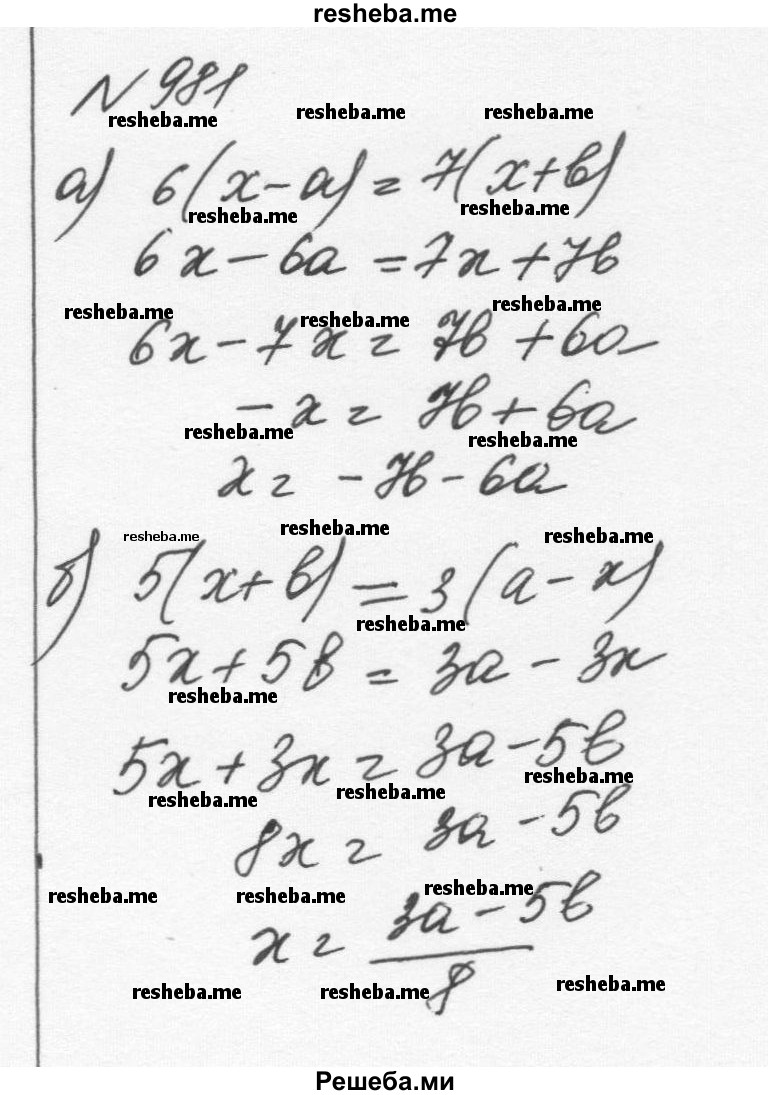 resheba.me
№ 981
resheba.me resheba.me resheba.me
а) 6(x-a) = 7(x+b)
resheba.me resheba.me
6x - 6a = 7x + 7b
resheba.me resheba.me resheba.me
6x - 7x = 7b + 6a
- x = 7b + 6a
resheba.me resheba.me
x = - 7b - 6a
resheba.me resheba.me resheba.me
б) 5(x+b) = 3(a-x)
resheba.me
5x + 5b = 3a - 3x
resheba.me
5x + 3x = 3a - 5b
resheba.me resheba.me resheba.me
8x = 3a - 5b
resheba.me resheba.me resheba.me
x = 3a - 5b
8
resheba.me resheba.me resheba.me
Решеба.ми